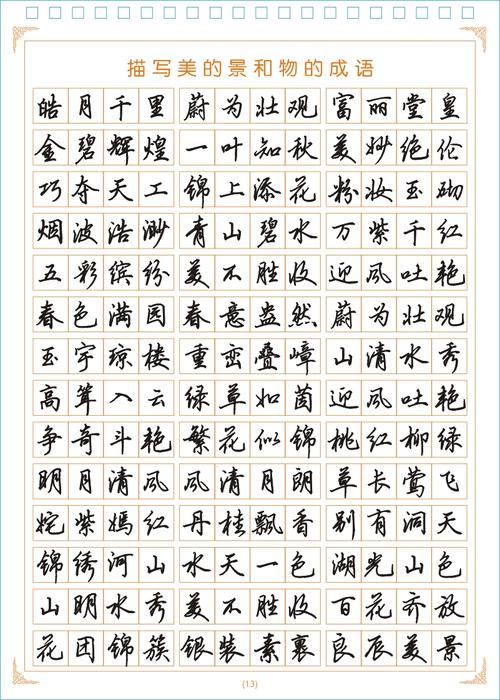 描写美的景和物的成语
皓月千里 蔚为壮观 富丽堂皇
金碧辉煌 一叶知秋 美妙绝伦
巧夺天工 锦上添花 粉妆玉砌
烟波浩渺 青山碧水 万紫千红
五彩缤纷 美不胜收 迎风吐艳
春色满园 春意盎然 蔚为壮观
玉宇琼楼 重峦叠嶂 山清水秀
高耸入云 绿草如茵 迎风吐艳
争奇斗艳 繁花似锦 桃红柳绿
明月清风 风清月朗 草长莺飞
姹紫嫣红 丹桂飘香 别有洞天
锦绣河山 水天一色 湖光山色
山明水秀 美不胜收 百花齐放
花团锦簇 银装素裹 良辰美景
(13)